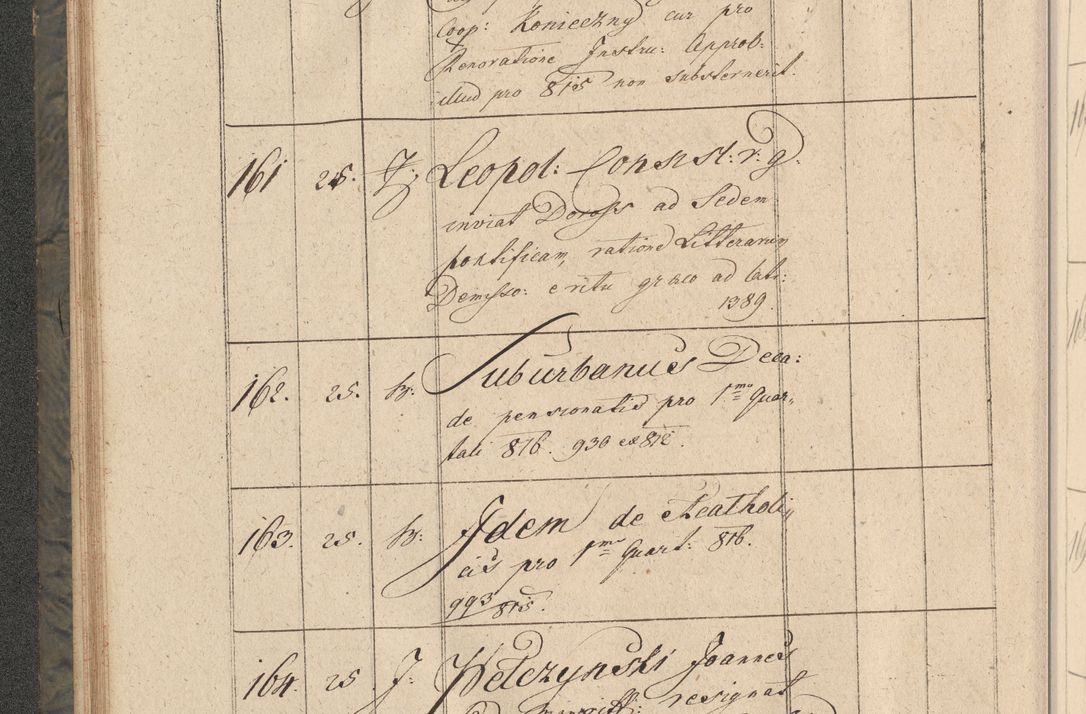 Coop: Konieczny cur pro
Renoratione Instru: Approb:
illud pro 815 non substernerit.
161 25. Leopol: Consist: r. g.
inviat Doross ad Sedem
pontificam, ratione Litterarum
Demisso: e ritu graeco ad lati:
1389
162. 25. Suburbanus Deca:
de pensionatis pro 1mo Quar„
tali 816. 930 ex 812.
163. 25. Idem de Acatholi„
cis pro 1mo Quart: 816.
993 815.
164. 25 J. Wełczynski Joannes
resignat